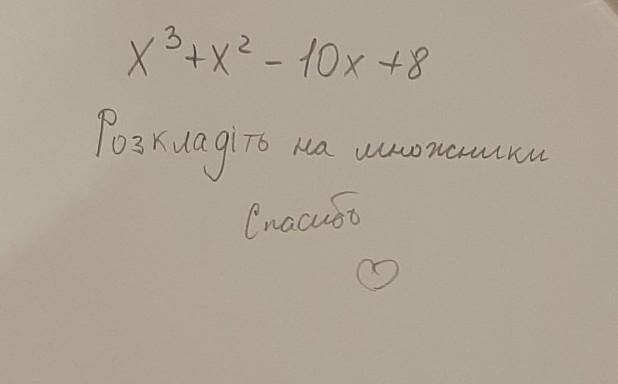 x³+x² - 10x +8
Розкладіть на множники
Спасибо
♡